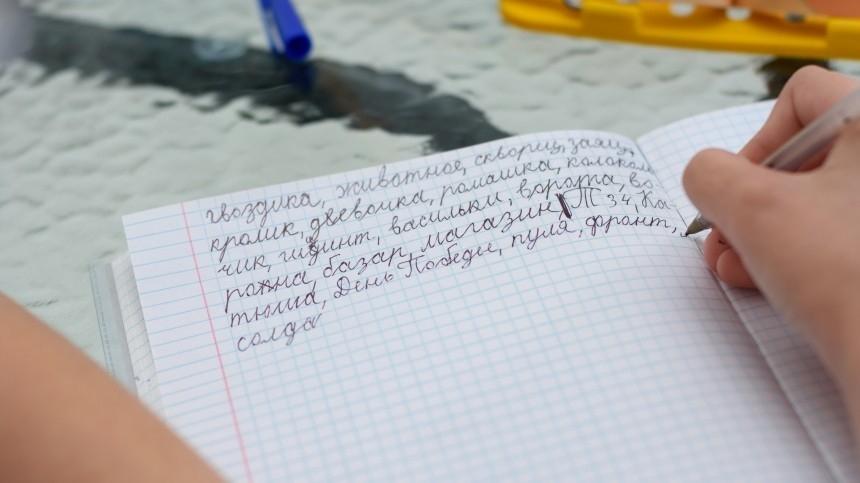 гвоздика, животное, скворец, заяц,
кролик, девочка, ромашка, колоколь
чик, гидинт, васильки, ворота, во
рона, базар, магазин, Т 34, Ка
тюша, День Победы, пуля, фронт,
солда